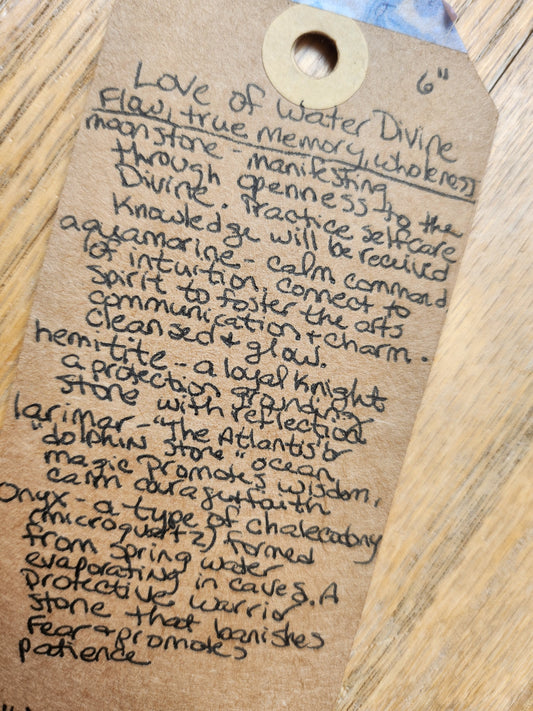 6"
Love of Water Divine
Flow, true memory, wholeness
moonstone - manifesting
through openness to the
Divine. Practice selfcare
Knowledge will be received
aquamarine - calm, command
of intuition, connect to
spirit to foster the arts
communication + charm.
cleansed + glow.
hemitite - a loyal Knight
a protection grounding
stone with reflection
larimar - "The Atlantis" or
"dolphins stone" ocean
magic promotes wisdom,
calm courage + faith
Onyx - a type of chalecadony
(microquartz) formed
from spring water
evaporating in caves. A
protective warrior
stone that banishes
Fear + promotes
patience